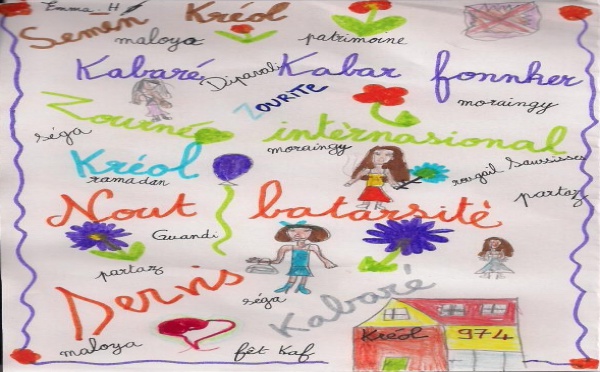 Emma. H
Semen Kréol
maloya patrimoine
Kabaré Dipavali Kabar fonnker
Zourite moraingy
Zourné internasional
séga moraingy
Kréol rougail Saussisses
ramadan partaz
Nout batarsité
Guandi
partaz
Dervis séga Kabaré
Kréol 974
maloya fèt Kaf